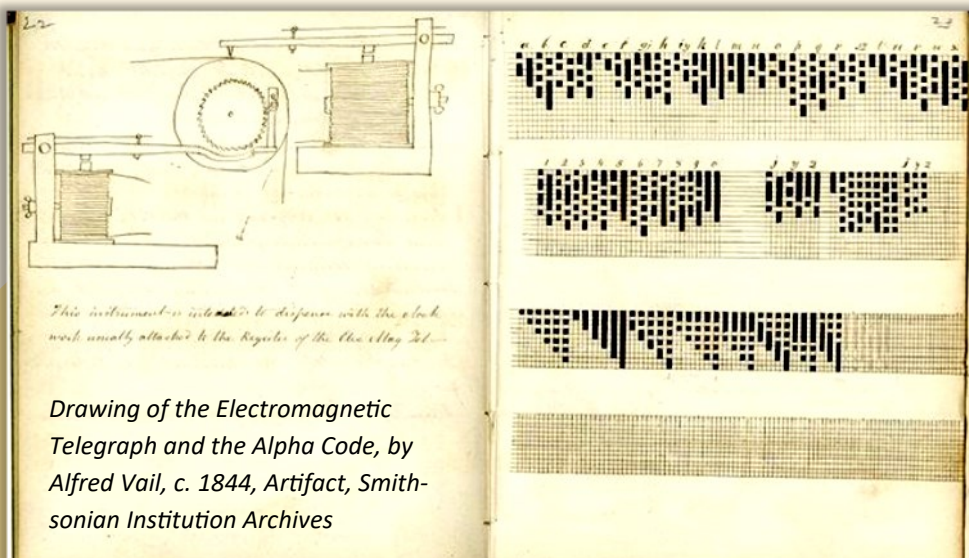 22
This instrument is intended to dispense with the clock
work usually attached to the Register of the Elec Mag Tel
Drawing of the Electromagnetic
Telegraph and the Alpha Code, by
Alfred Vail, c. 1844, Artifact, Smith-
sonian Institution Archives
23
a b c d e f gj h iy k l m n o p q r sz t u v w x
1 2 3 4 5 6 7 8 9 0 j y z j y z